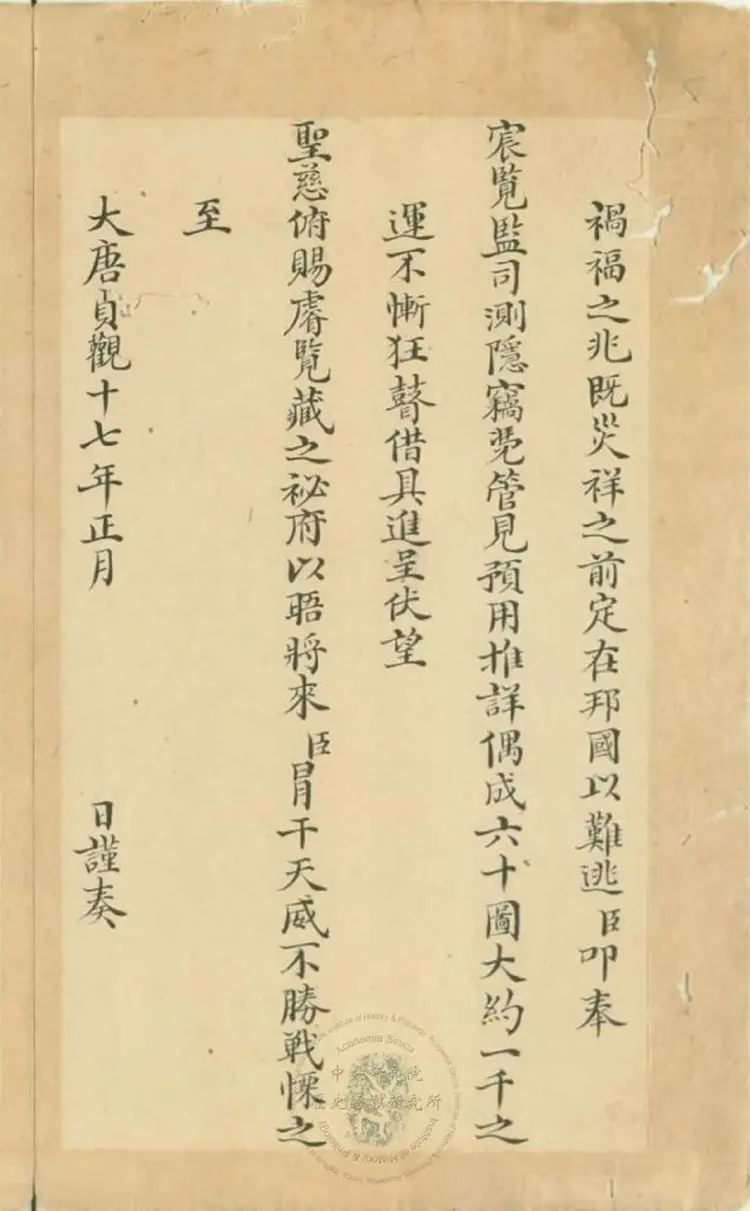 禍福之兆既災祥之前定在邦國以難逃臣叩奉
宸覽監司測隱竊㒵管見預用推詳偶成六十圖大約一千之
運不慚狂瞽借具進呈伏望
聖慈俯賜睿覽藏之祕府以晤將來臣冒干天威不勝戰慄之
至
大唐貞觀十七年正月 日謹奏
Institute of History & Philology, Academia Sinica
中央研究院
歷史語言研究所